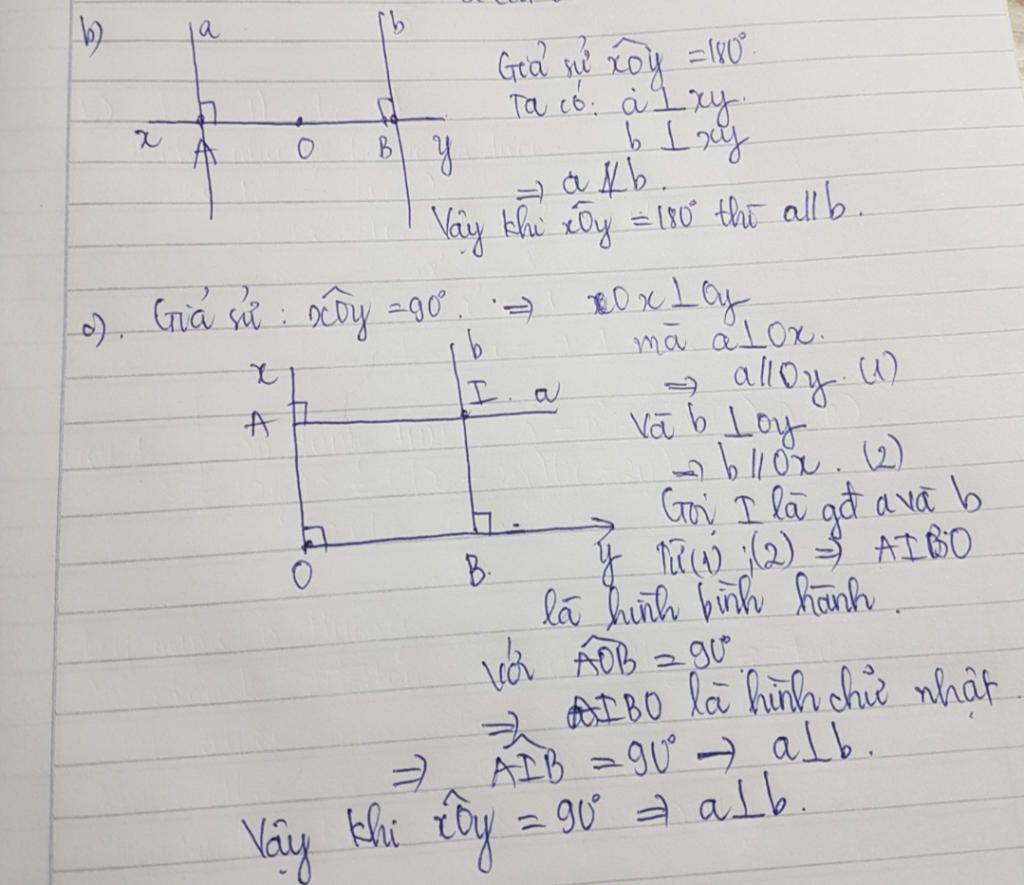 b)
a
b
x
A
O
B
y
Giả sử xÔy = 180°.
Ta có: a ⊥ xy.
b ⊥ xy
⇒ a // b.
Vậy khi xÔy = 180° thì a // b.
c). Giả sử: xÔy = 90°. ⇒ Ox ⊥ Oy
mà a ⊥ Ox.
⇒ a // Oy. (1)
Và b ⊥ Oy
⇒ b // Ox. (2)
x
b
A
I
a
O
B.
y
Gọi I là gđ a và b
Từ (1); (2) ⇒ AIBO
là hình bình hành.
Với AÔB = 90°
⇒ AIBO là hình chữ nhật.
⇒ AÎB = 90° → a ⊥ b.
Vậy khi xÔy = 90° ⇒ a ⊥ b.